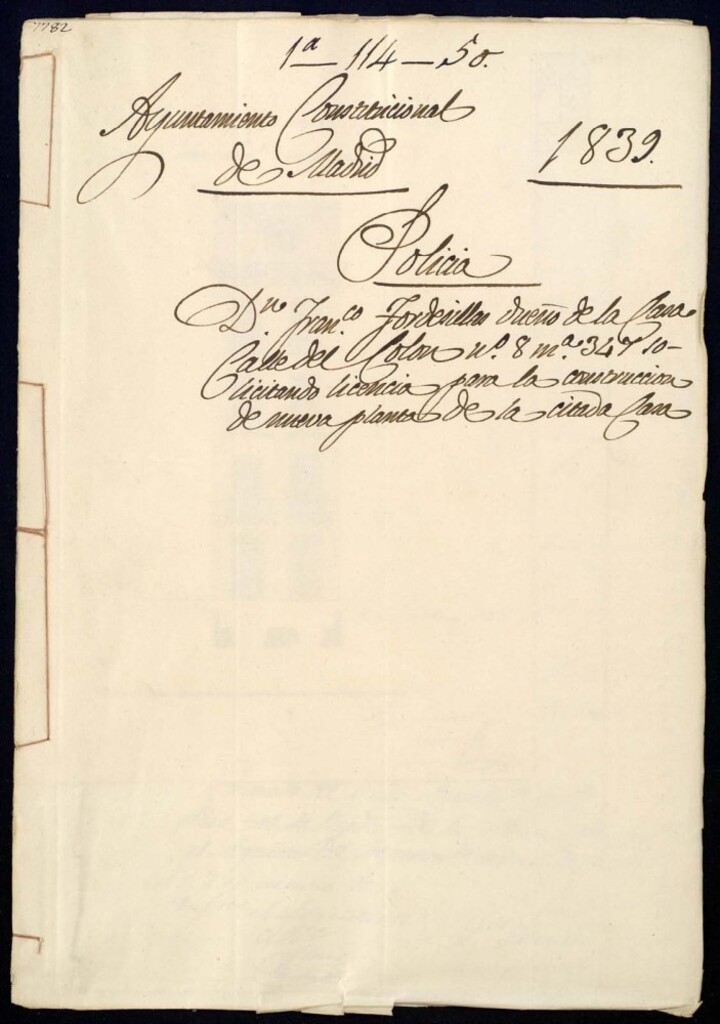 7782
1ª — 114 — 50.
Ayuntamiento Constitucional
de Madrid
1839.
Policia
Dn. Fran.co Tordesillas dueño de la Casa
Calle del Colon nº. 8 mª. 347 so-
licitando licencia para la construccion
de nueva planta de la citada Casa